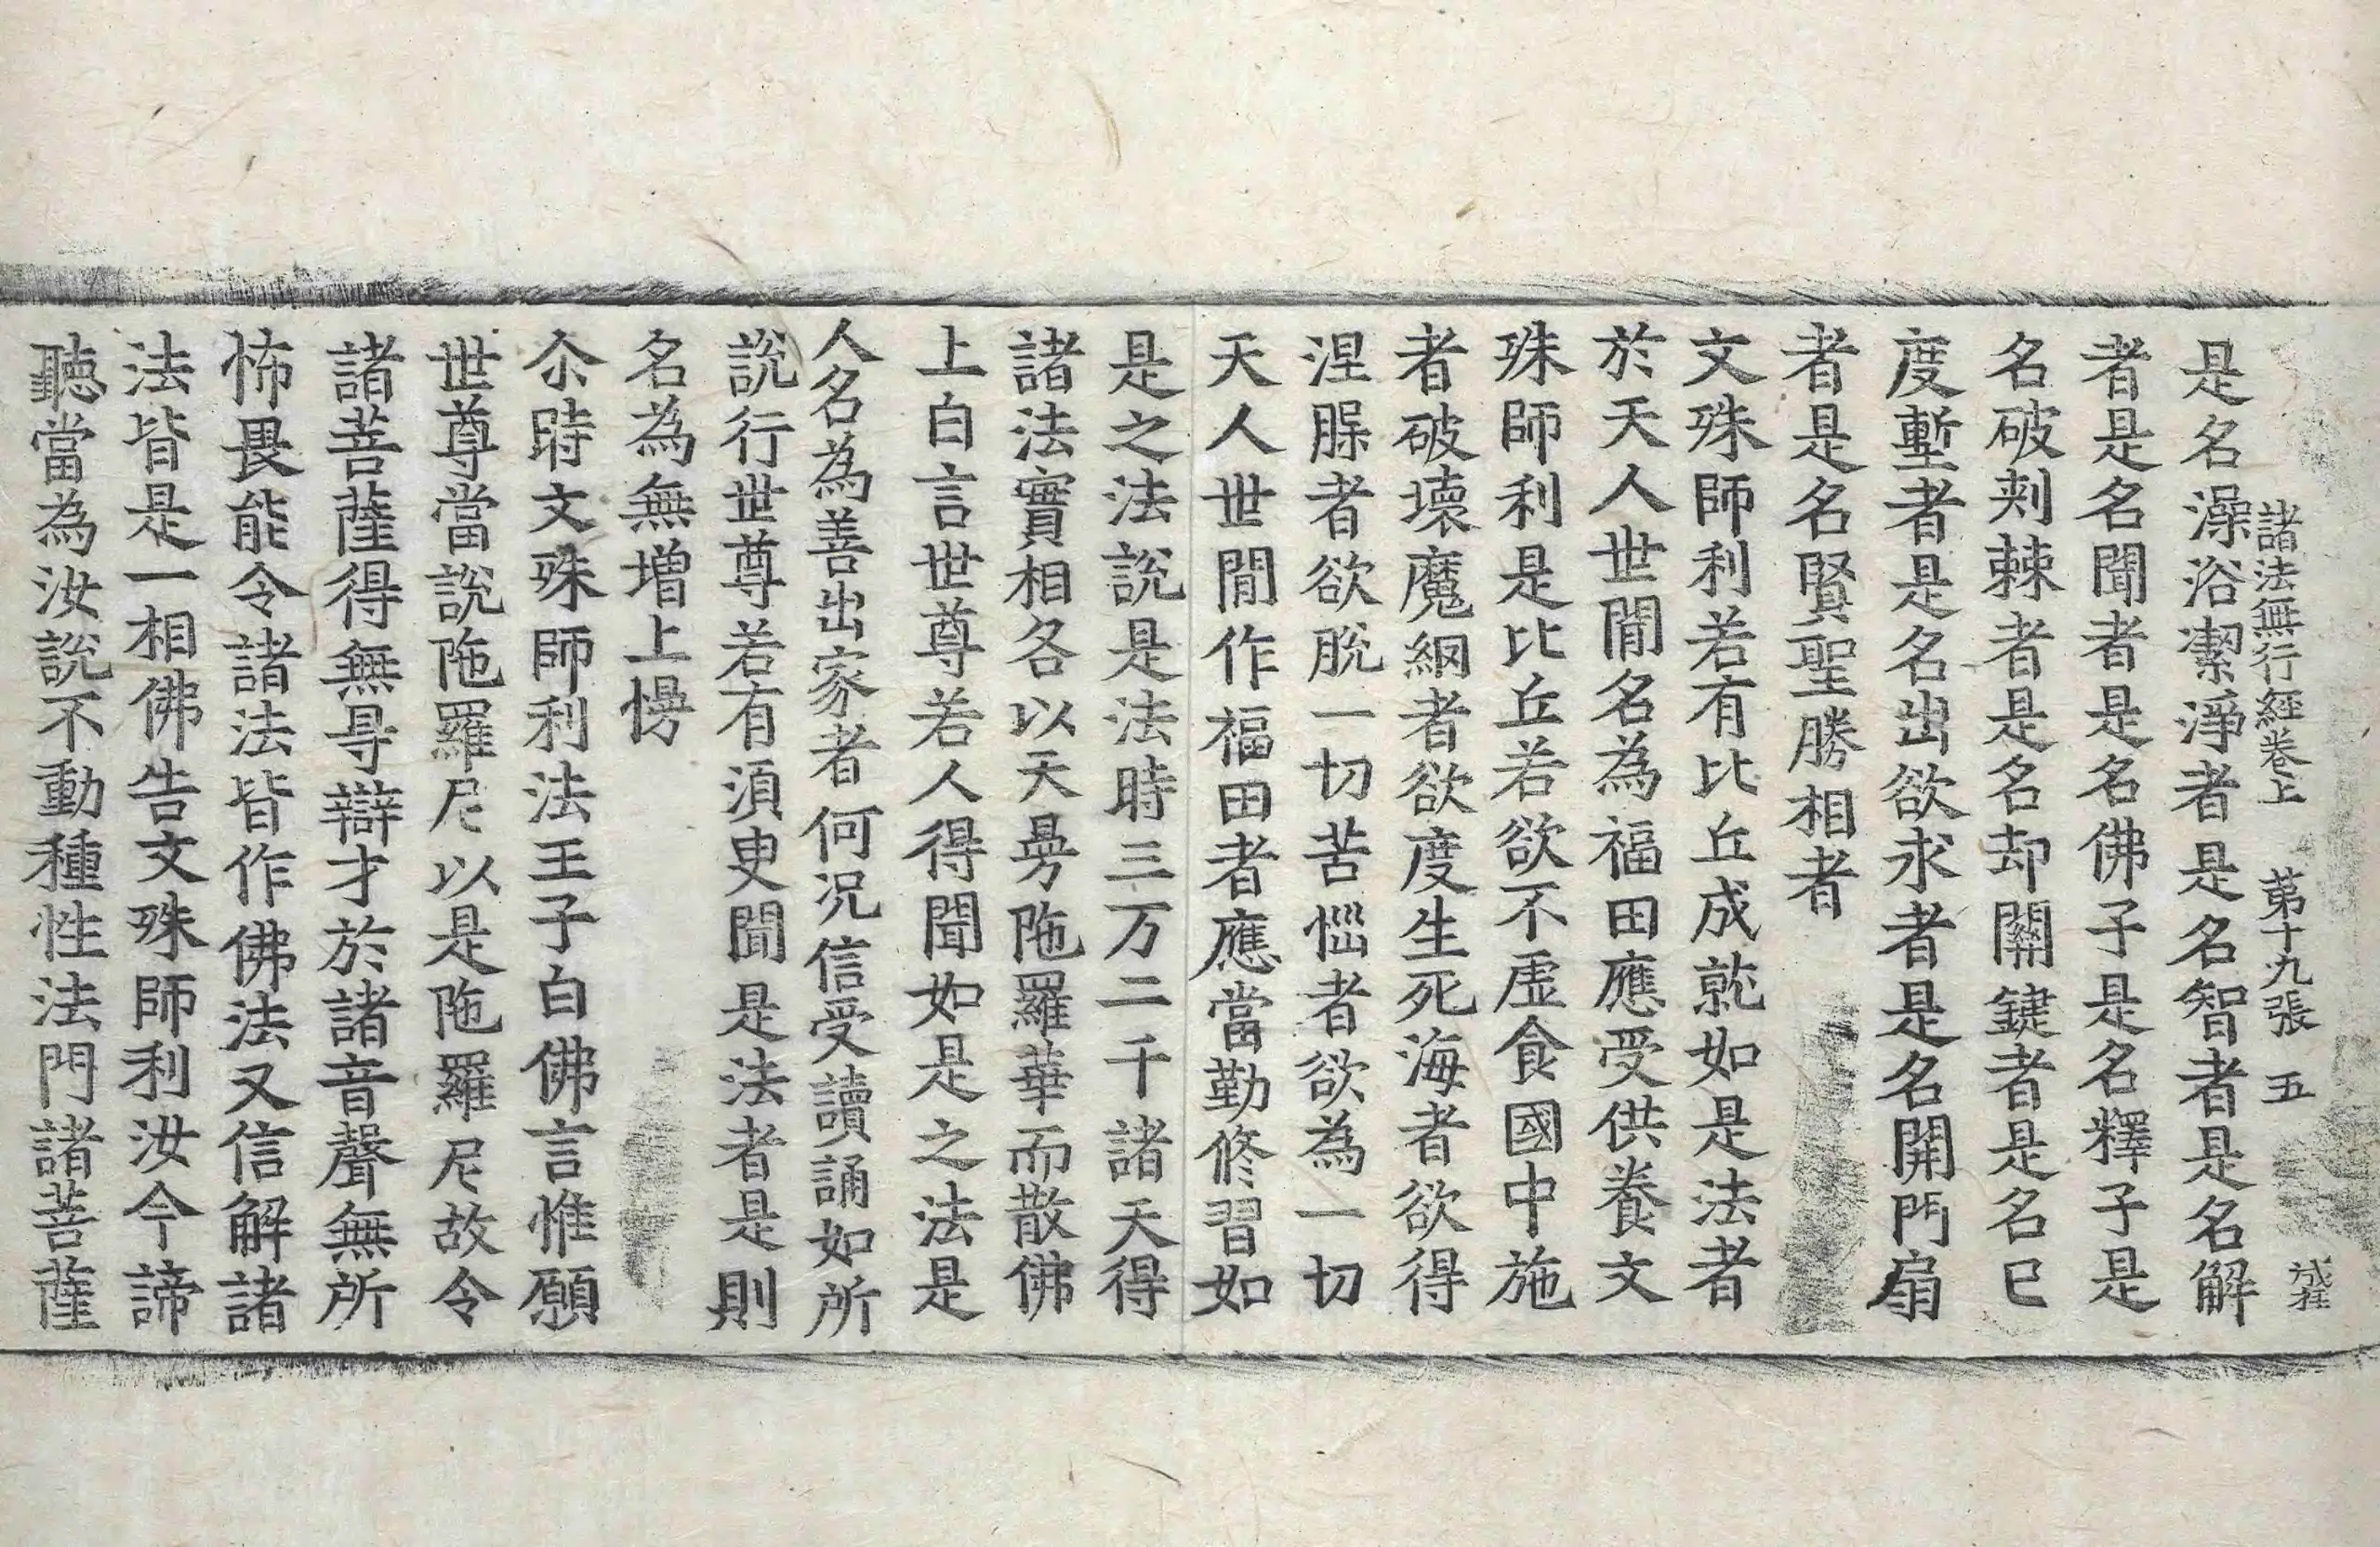 諸法無行經卷上 苐十九張 五
是名澡浴潔淨者是名智者是名解
者是名聞者是名佛子是名釋子是
名破刾棘者是名却關鍵者是名已
度壍者是名出欲求者是名開門扇
者是名賢聖勝相者
文殊師利若有比丘成就如是法者
於天人世閒名為福田應受供養文
殊師利是比丘若欲不虛食國中施
者破壞魔網者欲度生死海者欲得
涅槃者欲脫一切苦惱者欲為一切
天人世閒作福田者應當勤修習如
是之法說是法時三万二千諸天得
諸法實相各以天㬅陁羅華而散佛
上白言世尊若人得聞如是之法是
人名為善出家者何況信受讀誦如所
說行世尊若有須臾聞是法者是則
名為無增上慢
尒時文殊師利法王子白佛言惟願
世尊當說陁羅尼以是陁羅尼故令
諸菩薩得無㝵辯才於諸音聲無所
怖畏能令諸法皆作佛法又信解諸
法皆是一相佛告文殊師利汝今諦
聽當為汝說不動種性法門諸菩薩